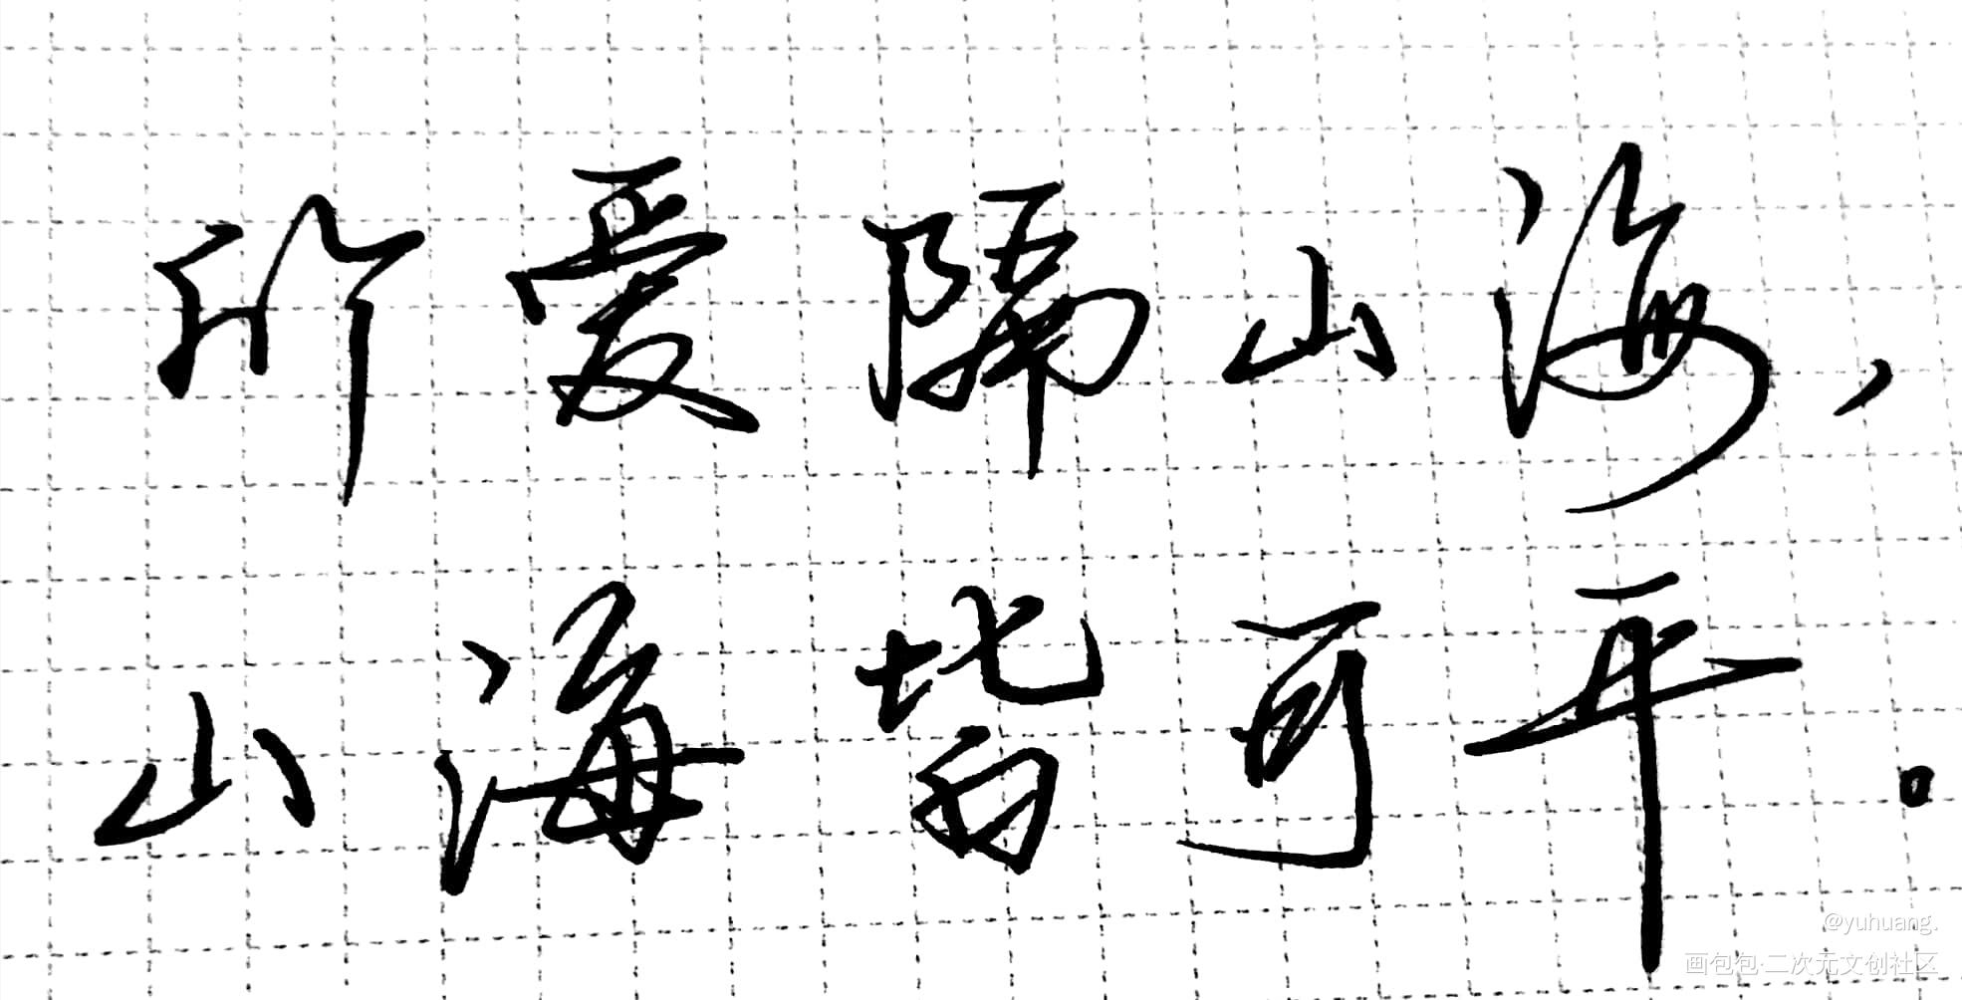 所爱隔山海，
山海皆可平。
@yuhuang.
画包包·二次元文创社区